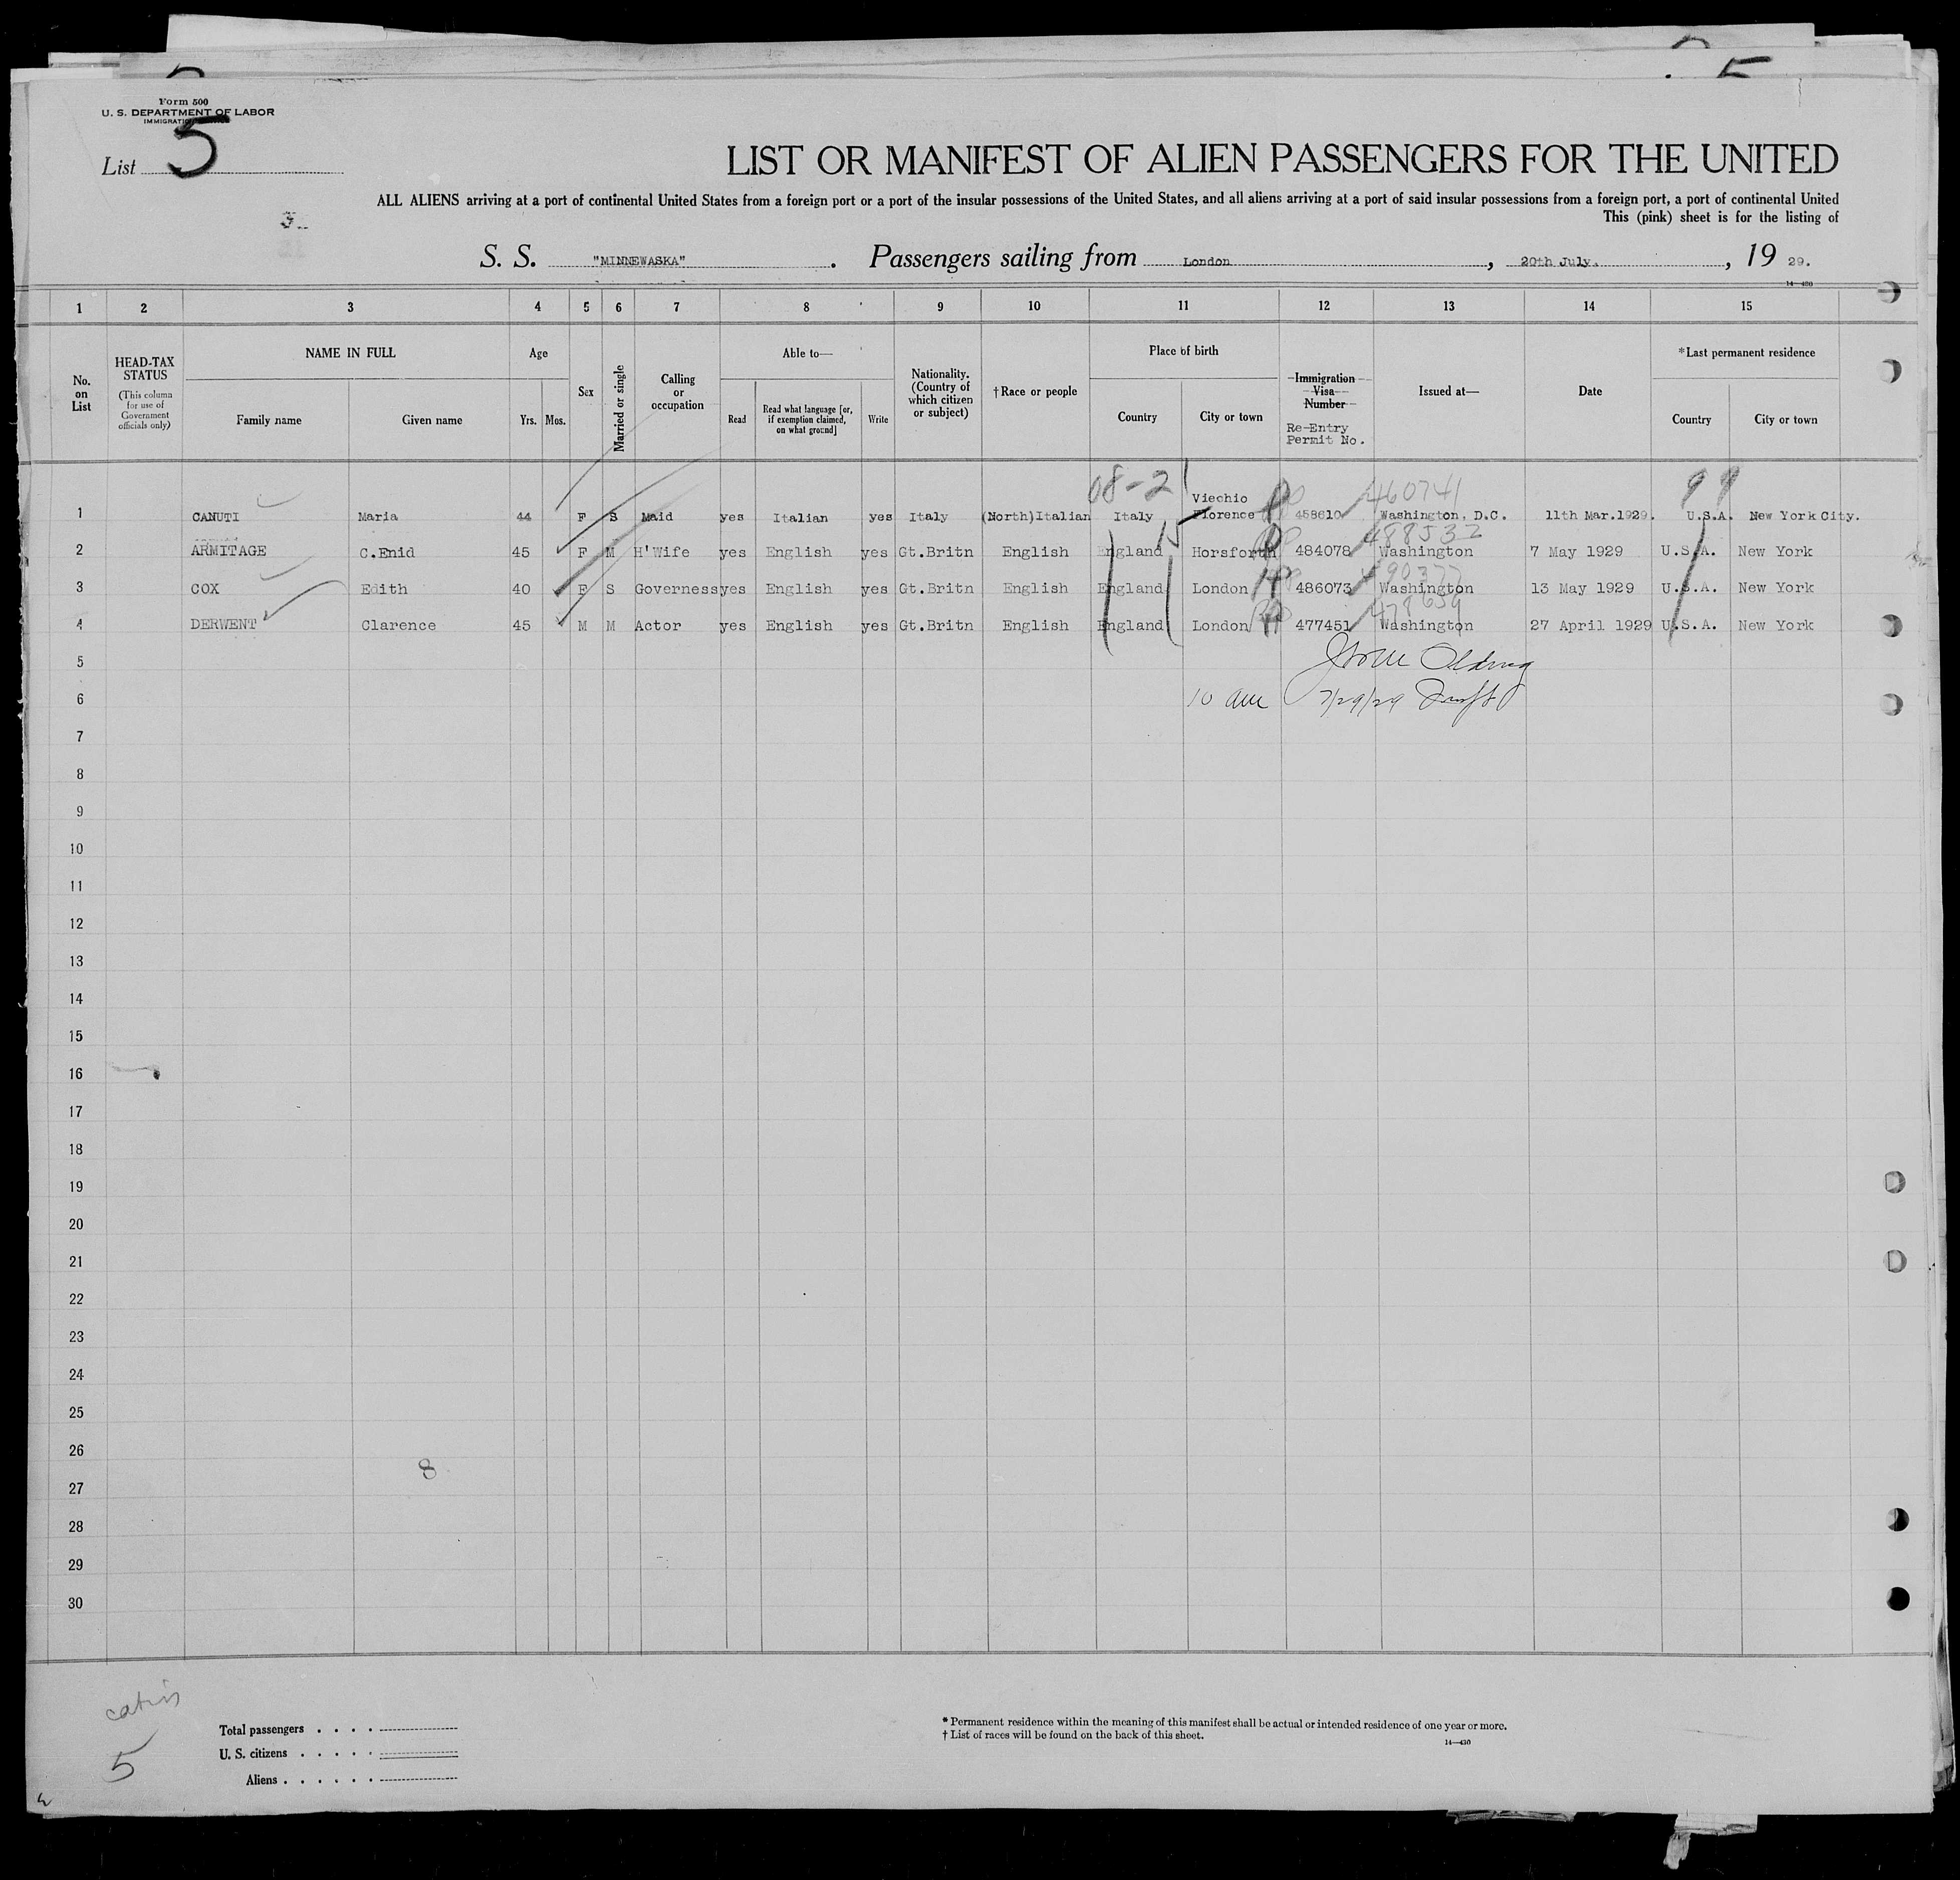 Form 500
U. S. DEPARTMENT OF LABOR
List 5
LIST OR MANIFEST OF ALIEN PASSENGERS FOR THE UNITED
ALL ALIENS arriving at a port of continental United States from a foreign port or a port of the insular possessions of the United States, and all aliens arriving at a port of said insular possessions from a foreign port, a port of continental United
This (pink) sheet is for the listing of
S. S. "MINNEWASKA". Passengers sailing from London, 20th July., 19 29.
14—430
1 2 3 4 5 6 7 8 9 10 11 12 13 14 15
No. on List
HEAD-TAX STATUS
(This column for use of Government officials only)
NAME IN FULL
Family name
Given name
Age
Yrs. Mos.
Sex
Married or single
Calling or occupation
Able to—
Read
Read what language [or, if exemption claimed, on what ground]
Write
Nationality. (Country of which citizen or subject)
†Race or people
Place of birth
Country
City or town
Immigration Visa Number
Re-Entry Permit No.
Issued at—
Date
*Last permanent residence
Country
City or town
08-2 Viechio 460741 99
1 CANUTI Maria 44 F S Maid yes Italian yes Italy (North)Italian Italy Florence 458610 Washington, D.C. 11th Mar.1929. U.S.A. New York City.
488532
2 ARMITAGE C.Enid 45 F M H'Wife yes English yes Gt.Britn English England Horsforth 484078 Washington 7 May 1929 U.S.A. New York
490377
3 COX Edith 40 F S Governess yes English yes Gt.Britn English England London 486073 Washington 13 May 1929 U.S.A. New York
478659
4 DERWENT Clarence 45 M M Actor yes English yes Gt.Britn English England London 477451 Washington 27 April 1929 U.S.A. New York
5
6 10 am 7/29/29
7
8
9
10
11
12
13
14
15
16
17
18
19
20
21
22
23
24
25
26
8
27
28
29
30
5
Total passengers . . . .
U. S. citizens . . . . .
Aliens . . . . . .
* Permanent residence within the meaning of this manifest shall be actual or intended residence of one year or more.
† List of races will be found on the back of this sheet.
14—430